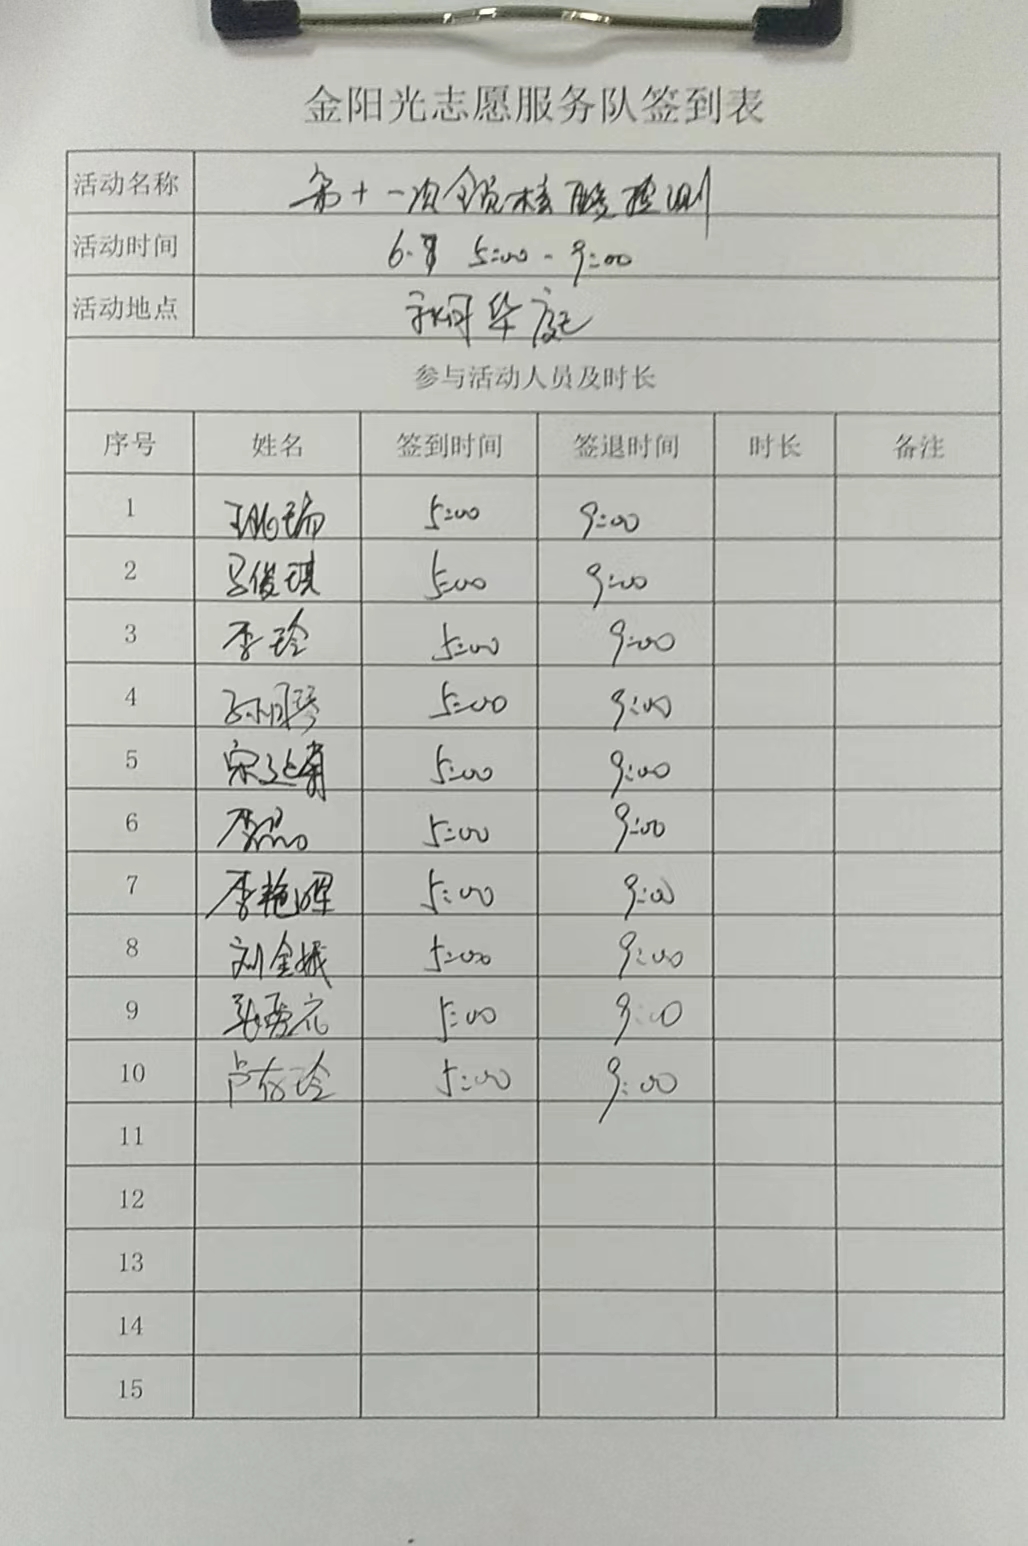 金阳光志愿服务队签到表
活动名称 第十一次全员核酸检测
活动时间 6. 5:00 - 9:00
活动地点 华庭
参与活动人员及时长
序号 姓名 签到时间 签退时间 时长 备注
1 5:00 9:00
2 俊琪 5:00 9:00
3 李玲 5:00 9:00
4 5:00 9:00
5 宋延菊 5:00 9:00
6 李 5:00 9:00
7 李艳晖 5:00 9:00
8 刘金娥 5:00 9:00
9 5:00 9:00
10 卢存玲 5:00 9:00
11
12
13
14
15